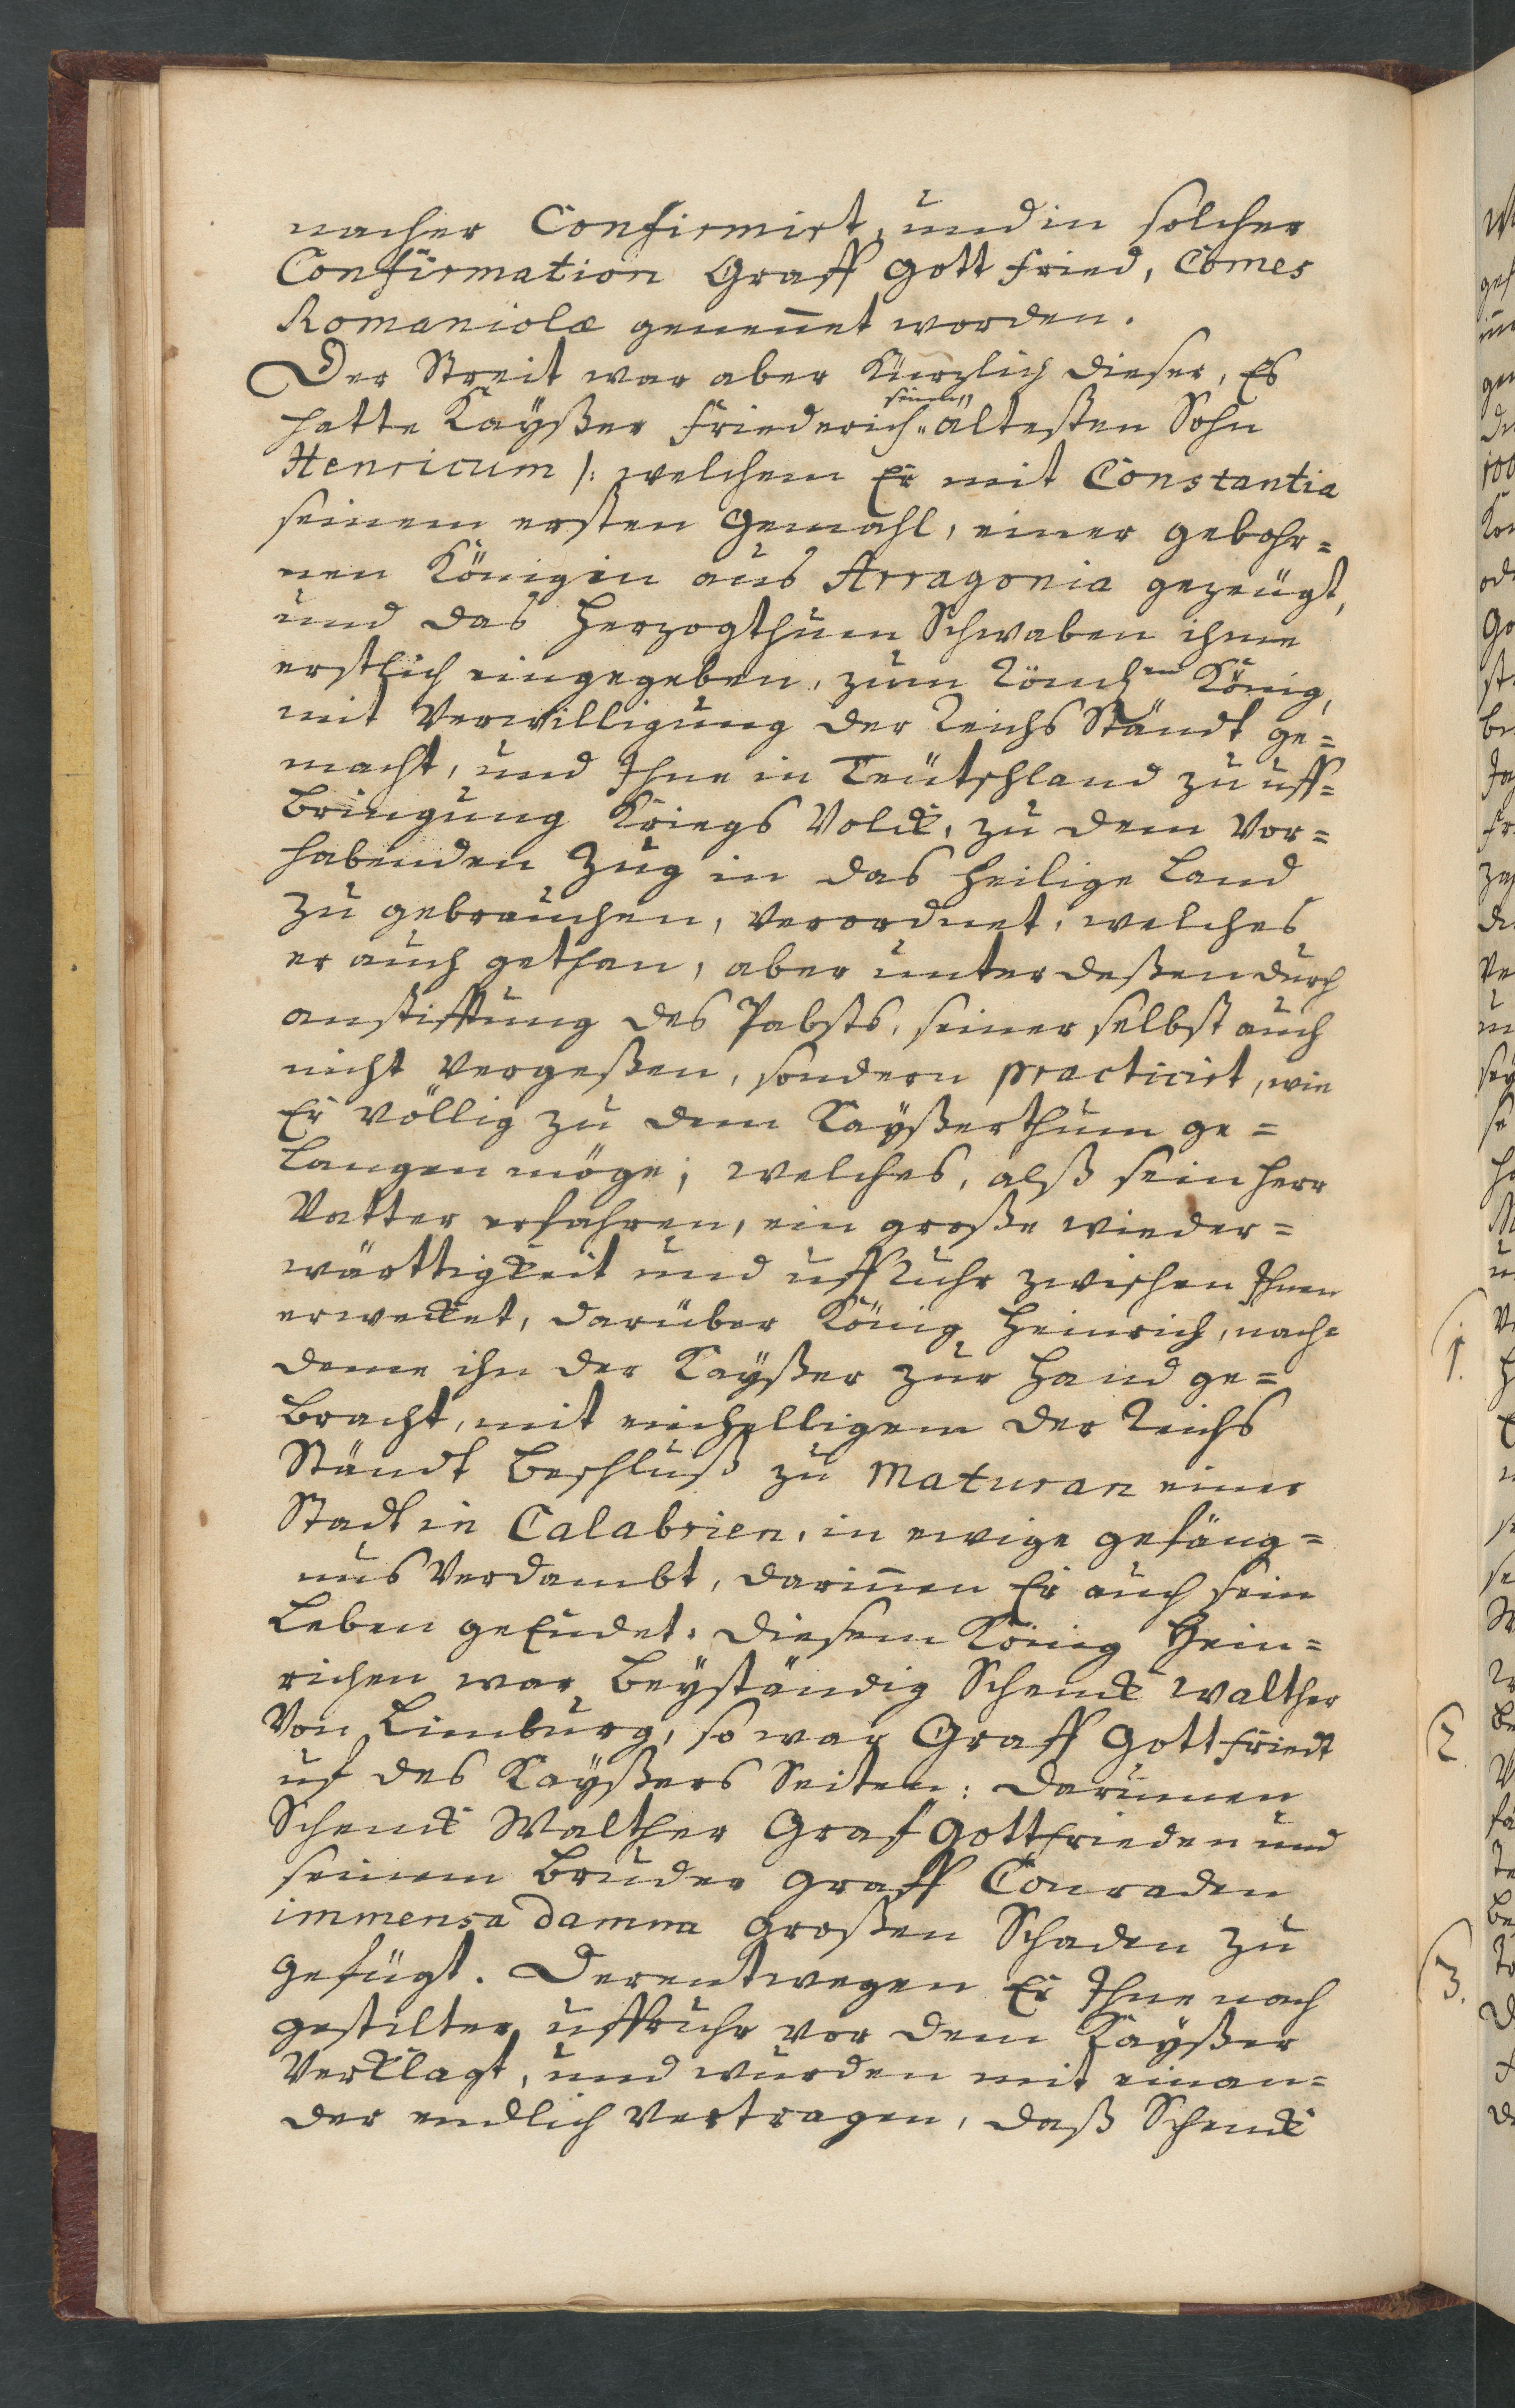 nacher Confirmirt, und in solcher
Confirmation Graff Gottfried, Comes
Romaniolæ genen̄et worden.
Der Streit war aber Kürzlich dieser, Es
hatte Kaÿßer Friederich seinen ältesten Sohn
Henricum /: welchem Er mit Constantia
seinem ersten Gemahl, einer gebohr=
nen Königin aus Arragonia gezeügt,
und das Herzogthum Schwaben ihme
erstlich eingegeben, zum Römschen König,
mit Verwilligung der Reichs Ständt ge=
macht, und Ihne in Teütschland zu uff=
bringung Kriegs Volck, zu dem Vor=
habenden Zug in das heilige Land
zu gebrauchen, verordnet, welches
er auch gethan, aber unterdeßen durch
anstifftung des Pabsts, seiner selbst auch
nicht vergeßen, sondern practicirt, wie
Er völlig zu dem Kaÿßerthum ge=
langen möge; welches, alß sein Herr
Vatter erfahren, ein große wieder=
wärttigkeit und uffruhr zwischen Ihnen
erwecket, darüber König Heinrich, nach=
deme ihn der Kaÿßer zur Hand ge=
bracht, mit einhelligem der Reichs
Ständt Beschluß zu Maturan einer
Stadt in Calabrien, in ewige gefäng=
nus Verdambt, darin̄en Er auch sein
Leben geEndet. Diesem König Hein=
richen war Beÿständig Schenck Walther
Von Limburg, so war Graff Gottfriedt
uf des Kaÿßers Seiten: Darumen
Schenck Walther Graf Gottfrieden und
seinem Bruder Graff Conraden
immensa damna großen Schaden zu
gefügt. Derentwegen Er Ihne nach
gestilter uffruhr vor dem Kaÿßer
Verklagt, und wurden mit einan=
der endlich Vertragen, daß Schenck
1.
2.
3.